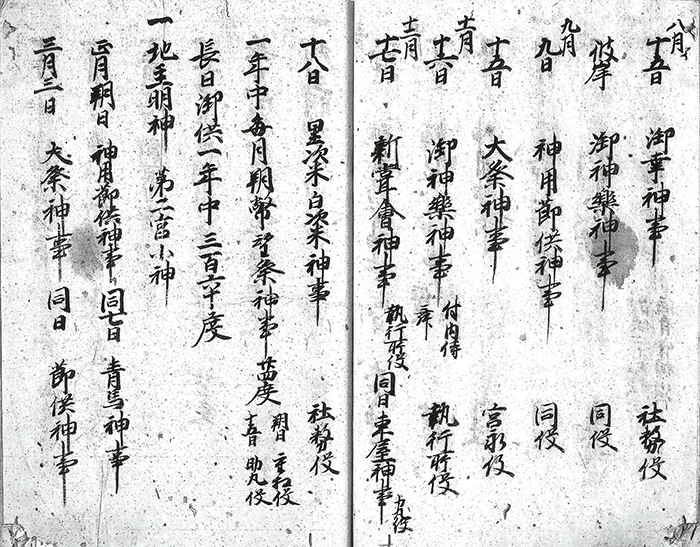 八月
十五日 御幸神事 社務役
彼岸 御神樂神事 同役
九月
九日 神用節供神事 同役
十五日 大祭神事 宮永役
十一月
十六日 御神樂神事 付内侍 舞 執行所役
十二月
十七日 新嘗會神事 執行所役 同日 東屋神事
十八日 黒次米白次米神事 社務役
一年中每月朔幣望祭神事 廿四度 朔日 主税役 十五日 助九役
長日御供一年中三百六十度
一 地主明神 第二宮小神
正月朔日 神用節供神事 同七日 青馬神事
三月三日 大祭神事 同日 節供神事